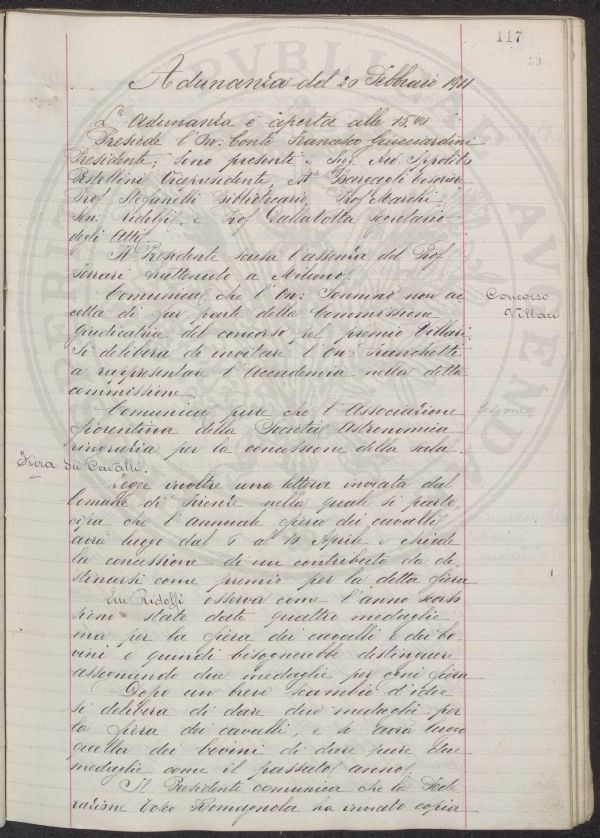 117
59
Adunanza del 20 Febbraio 1911
L'adunanza è aperta alle 15.40
Presiede l'On: Conte Francesco Guicciardini
Presidente; sono presenti: Ing. Ippolito
Pestellini Vicepresidente, Bargagli Tesoriere,
Prof Stefanelli Bibliotecario, Prof Marchi,
Sen: Ridolfi e Prof Dalla Volta segretario
degli Atti.
Il Presidente scusa l'assenza del Prof
Ferrari trattenuto a Milano.
Comunica che l'On: Sonnino non ac
cetta di far parte della Commissione
giudicatrice del concorso pel premio Villari.
Si delibera di invitare l'On: Franchetti
a rappresentare l'Accademia nella detta
commissione.
Concorso
Villari
Comunica pure che l'Associazione
fiorentina della Società Astronomica
ringrazia per la concessione della sala.
Fiera dei Cavalli.
Legge inoltre una lettera inviata dal
Comune di Firenze nella quale si parte
cipa che l'annuale fiera dei cavalli
avrà luogo dal 6 al 10 Aprile e chiede
la concessione di un contributo da de
stinarsi come premio per la detta fiera
Sen Ridolfi osserva come l'anno scorso
siano state date quattro medaglie
ma per la fiera dei cavalli e dei bo
vini e quindi bisognerebbe distinguere
assegnando due medaglie per ogni fiera
Dopo un breve scambio d'idee
si delibera di dare due medaglie per
la fiera dei cavalli, e se avrà luogo
quella dei bovini di dare pure due
medaglie come il passato anno.
Il Presidente comunica che la Fede
razione Tosco Romagnola ha inviato copia